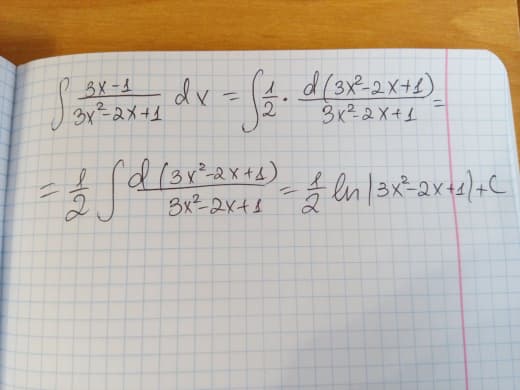 ∫ (3x-1)/(3x²-2x+1) dx = ∫ 1/2 · d(3x²-2x+1)/(3x²-2x+1) =
= 1/2 ∫ d(3x²-2x+1)/(3x²-2x+1) = 1/2 ln|3x²-2x+1|+C